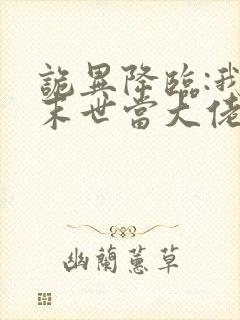 詭異降臨:我
末世當大佬
幽蘭蕙草